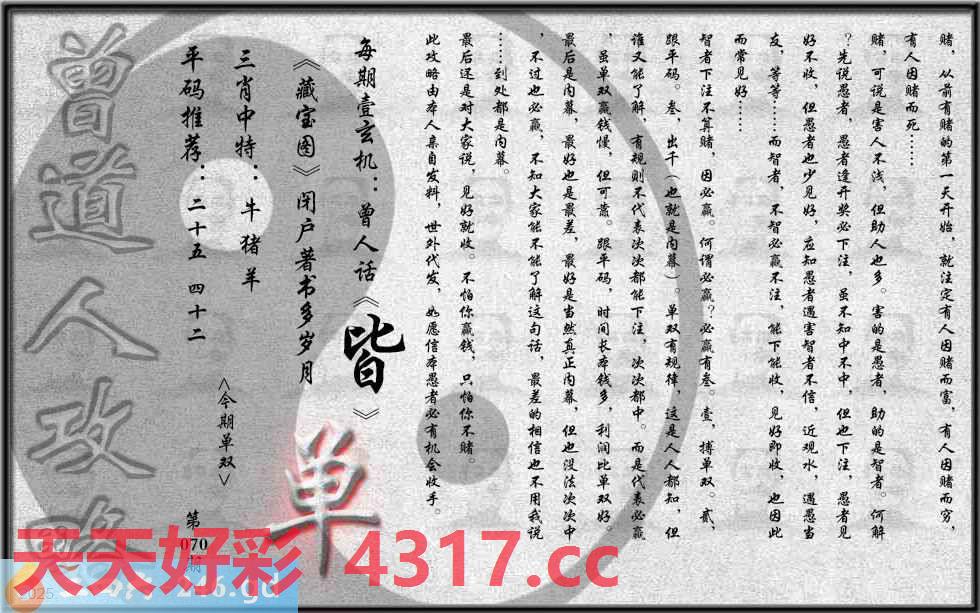 赌，从前有赌的第一天开始，就注定有人因赌而富，有人因赌而穷，
有人因赌而死……
赌，可说是害人不浅，但助人也多。害的是愚者，助的是智者。何解
？先说愚者，愚者逢开奖必下注，虽不知中不中，但也下注，愚者见
好不收，但愚者也少见好，应知愚者遇害智者不信，近观水，遇愚当
友，等等……而智者，不智必赢不注，能下能收，见好即收，也因此
而常见好……
智者下注不算赌，因必赢。何谓必赢？必赢有叁。壹，搏单双。贰，
跟平码。叁，出千（也就是内幕）。单双有规律，这是人人都知，但
谁又能了解，有规则不代表次次都能下注，次次都中。而是代表必赢
，虽单双赢钱慢，但可靠。跟平码，时间长本钱多，利润比单双好。
最后是内幕，最好也是最差，最好是当然真正内幕，但也没法次次中
，不过也必赢，不知大家能不能了解这句话，最差的相信也不用我说
……到处都是内幕。
最后还是对大家说，见好就收。不怕你赢钱，只怕你不赌。
此攻略由本人亲自发料，世外代发，如愿信本愚者必有机会收手。
每期壹玄机：曾人话《皆》
《藏宝图》闭户著书多岁月
三肖中特：牛猪羊
平码推荐：二十五 四十二
<今期单双>
单
第070期
曾道人攻略
天天好彩 4317.cc
2025
246.gd